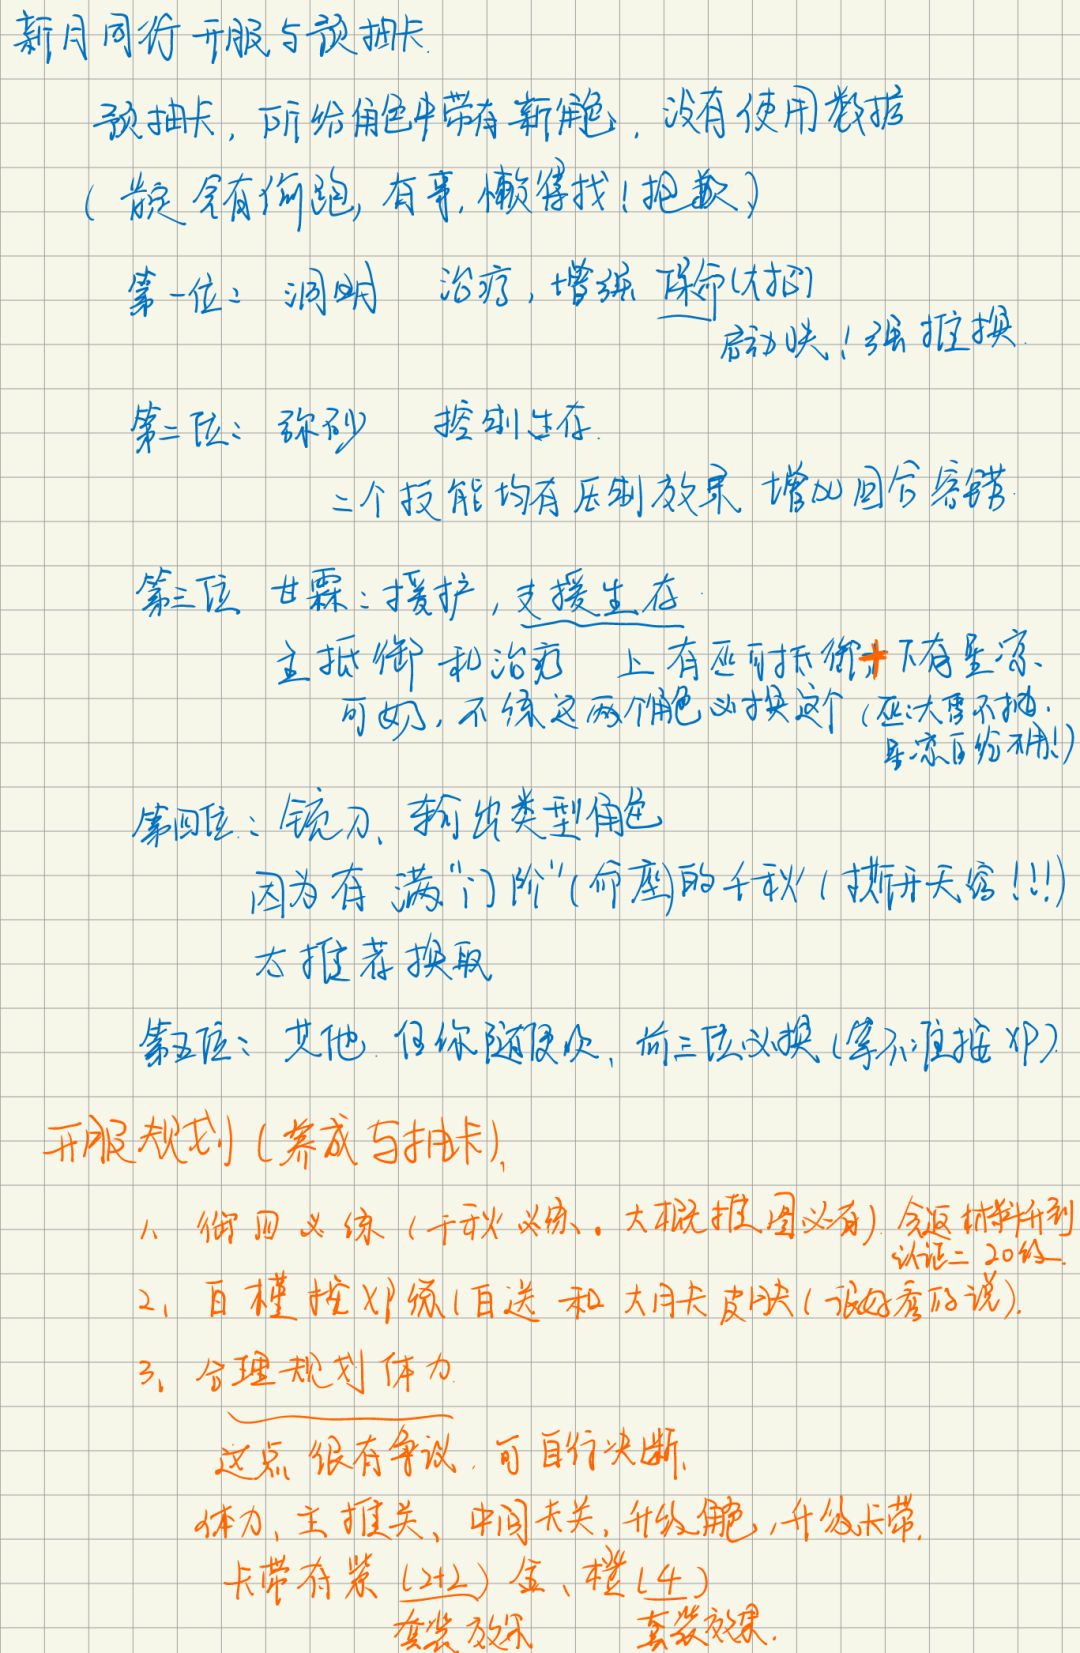 新月同行开服与预抽卡.
预抽卡,所给角色中带有新角色,没有使用数据
(肯定会有偷跑,有事,懒得找!抱歉)
第一位: 洞明 治疗,增强 保命(大招)
启动快!强推换.
第二位: 弥砂 控制生存.
二个技能均有压制效果 增加回合容错.
第三位 甘霖:援护,支援生存.
主抵御和治疗 上有巫可抵御+下有星凉、
可奶,不练这两个角色必换这个(巫:大雪不抽.
星凉自给不用!)
第四位: 镜刀、输出类型角色
因为有满“门阶”(命座)的千秋(撕开天穹!!!)
不推荐换取
第五位: 其他 任你随便吹、前三位必换(拿不准按XP)
开服规划(养成与抽卡)、
1、御四必练(千秋必练。大概推图必有)会返材料升到
认证二20级.
2、白槿按XP练(自送和大月卡皮肤(很好看的说).
3、合理规划体力.
这点很有争议,可自行决断、
体力、主推关、中间夫关,升级角色,升级卡带.
卡带有紫(2+2)金、橙(4)
套装效果 套装效果.